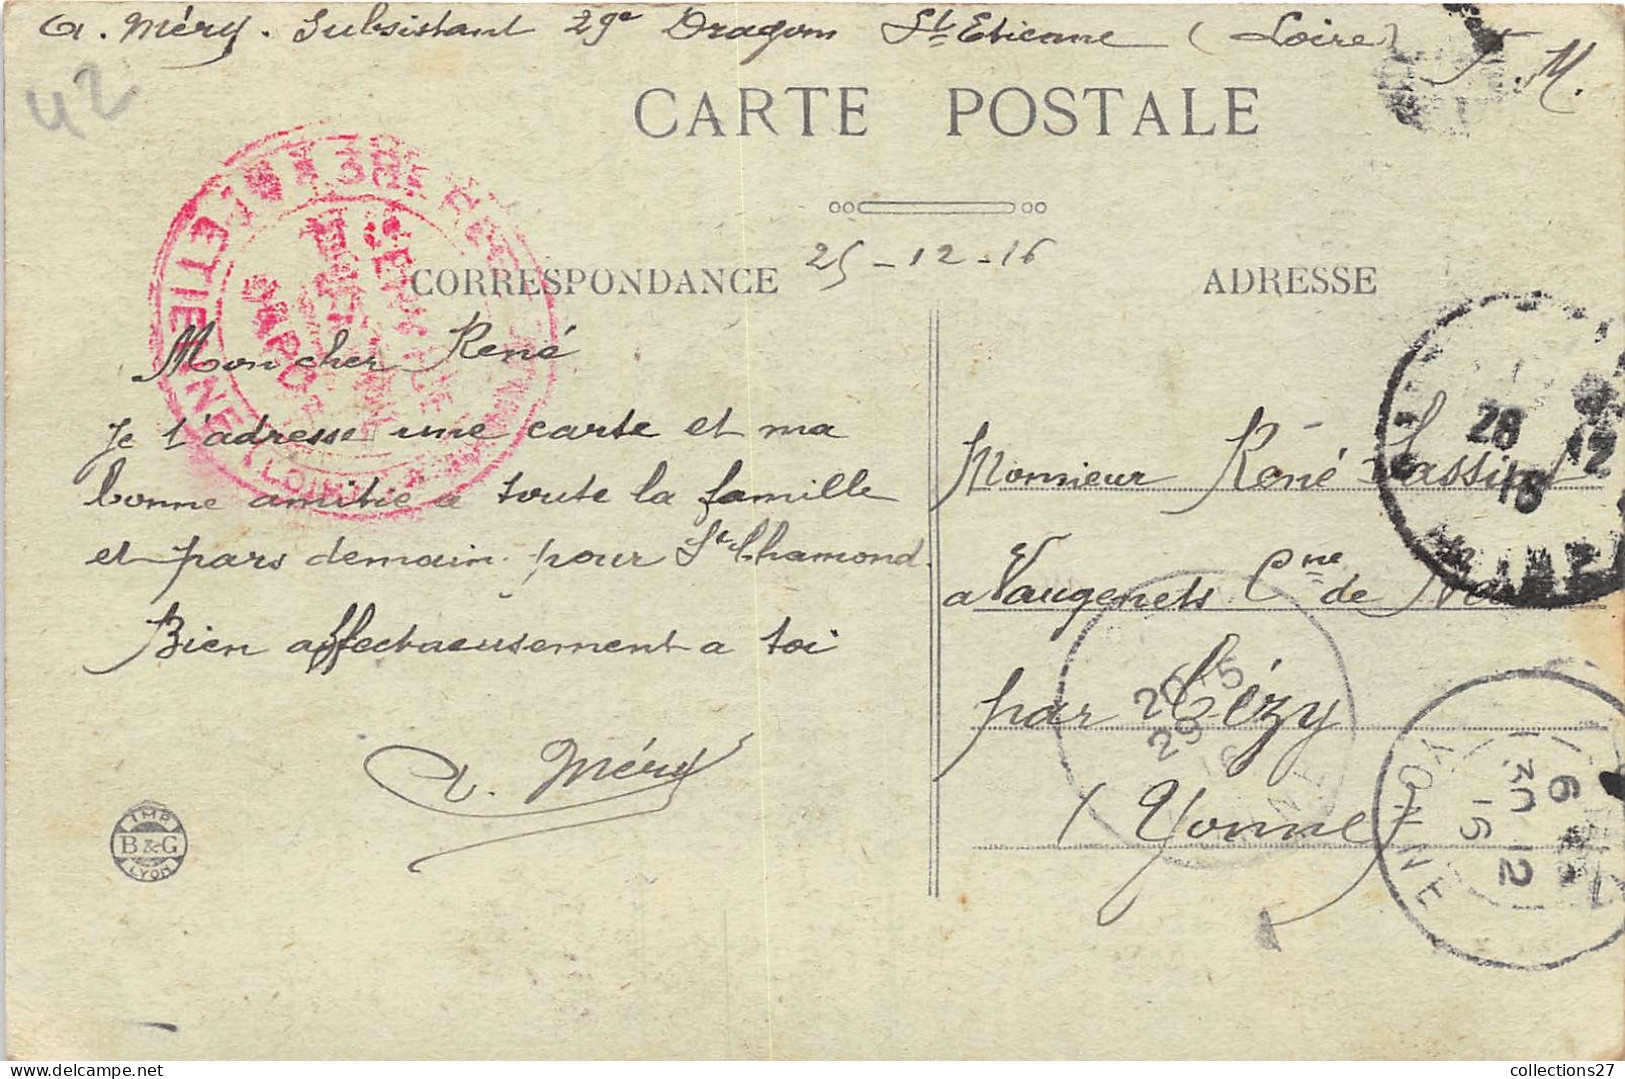 A. Méry. Subsistant 29e Dragons St Etienne (Loire)
F. M.
42
CARTE POSTALE
25 - 12 - 16
CORRESPONDANCE
ADRESSE
Mon cher René
Je t'adresse une carte et ma
bonne amitié a toute la famille
et pars demain pour St Chamond.
Bien affectueusement a toi
A. Méry
IMP
B & G
LYON
Monsieur René
a Vaugenets Cne de
par Cézy
(Yonne)
ETIENNE
(LOIRE)
28 12
16
20 15
29
16
YONNE
6
30 12
16
collections27